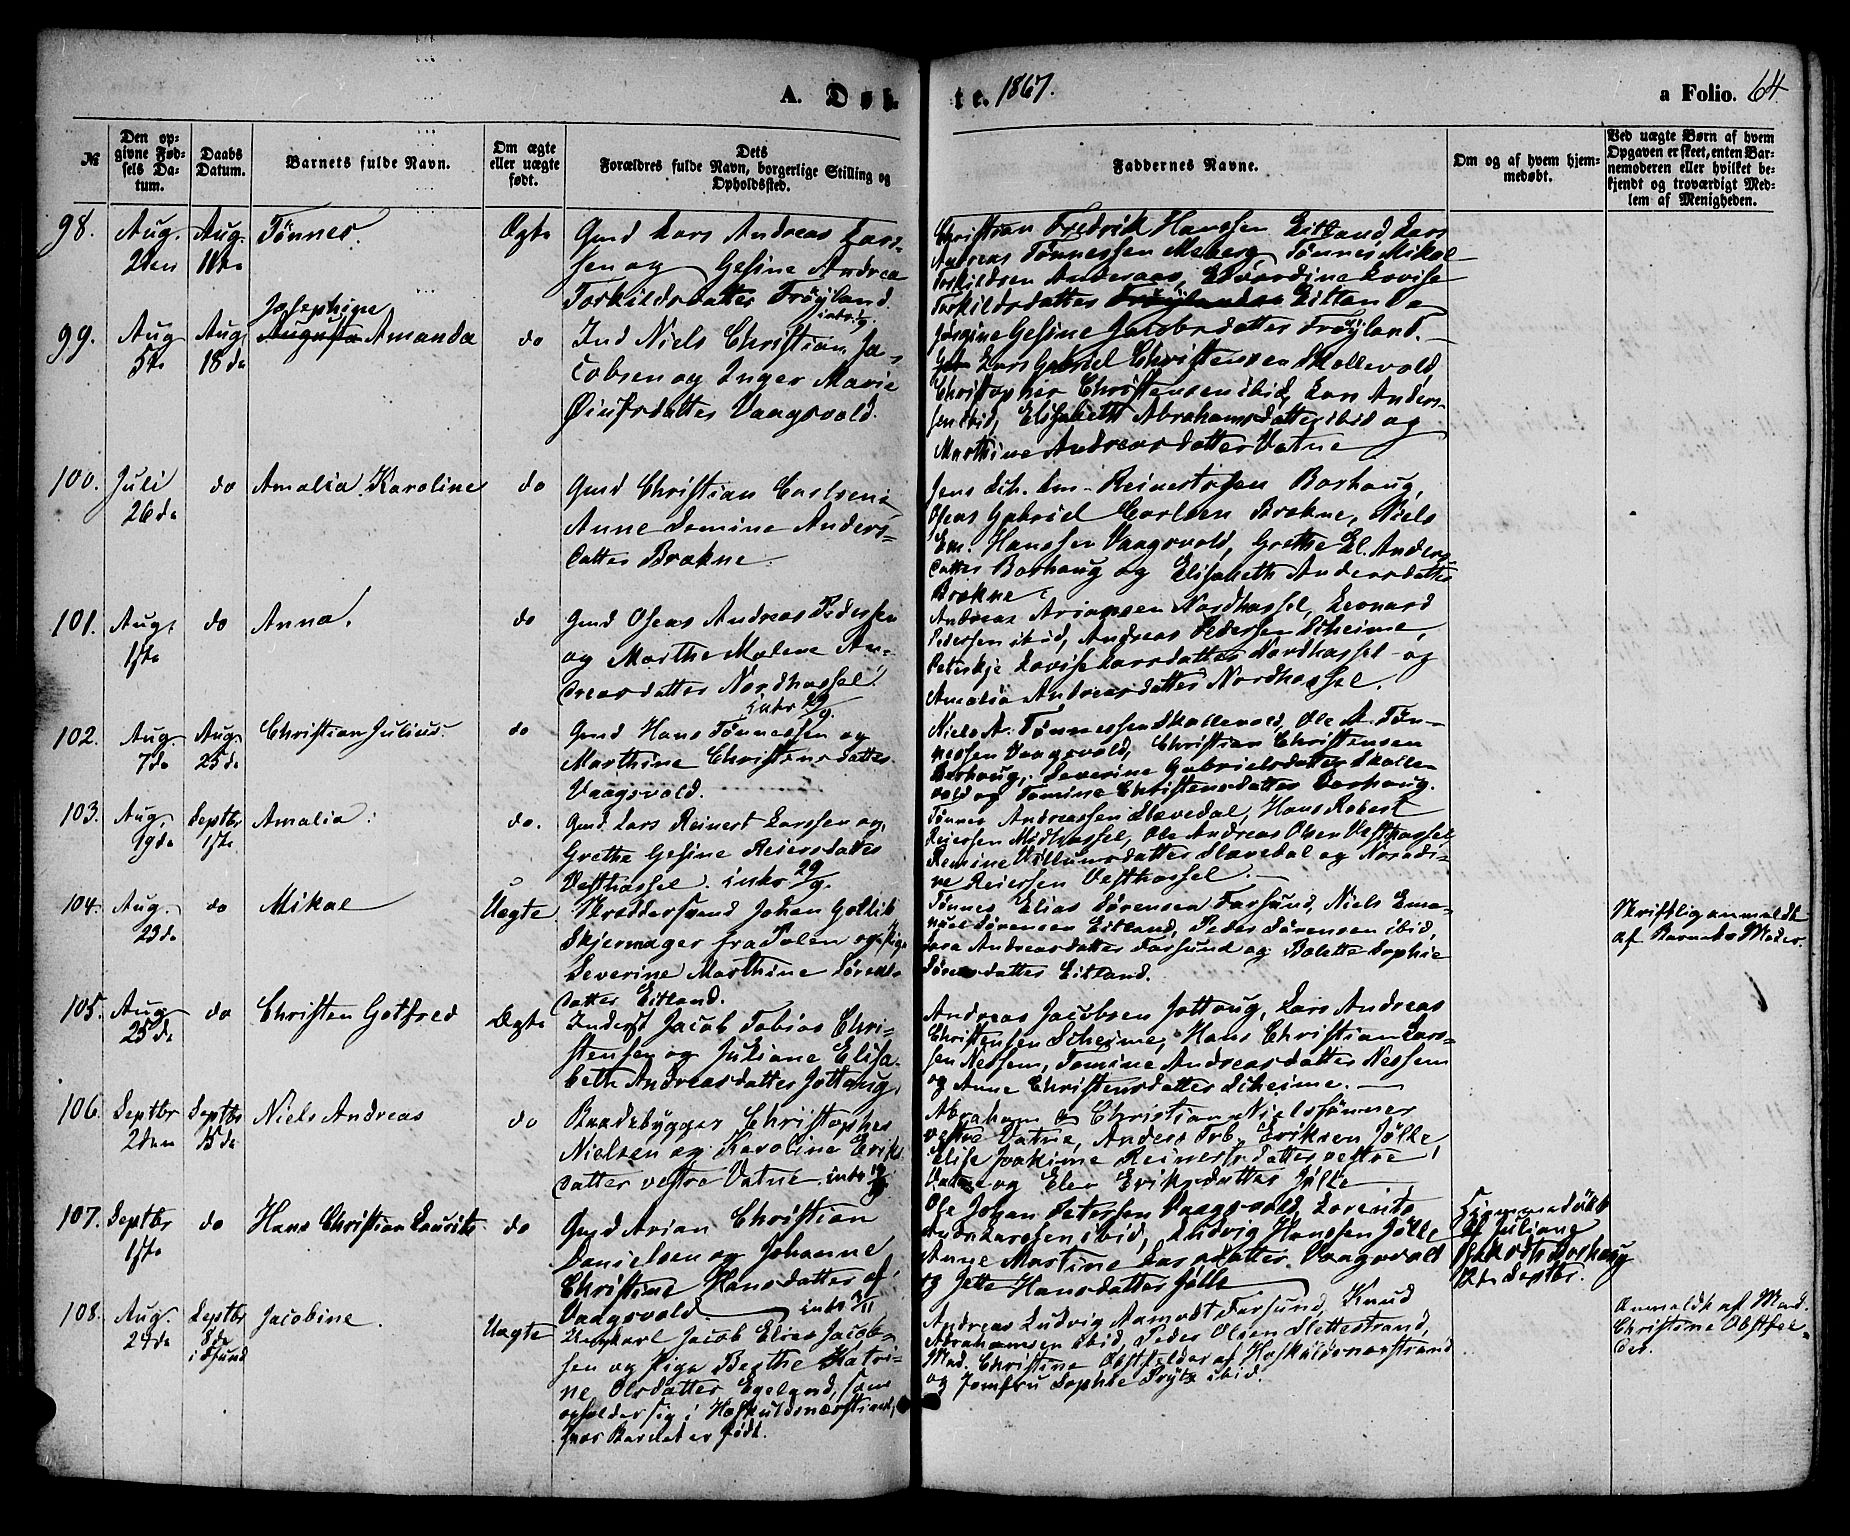 A. Døb
te. 1867.
a Folio. 64.
№
Den op-
givne Fød-
sels Da-
tum.
Daabs
Datum.
Barnets fulde Navn.
Om ægte
eller uægte
født.
Dets
Forældres fulde Navn, borgerlige Stilling og
Opholdssted.
Faddernes Navne.
Om og af hvem hjem-
medøbt.
Ved uægte Børn af hvem
Opgaven er skeet, enten Bar-
nemoderen eller hvilket be-
kjendt og troværdigt Med-
lem af Menigheden.
98.
Aug.
2den
Aug.
11te
Tønnes.
Ægte
Gmd Lars Andreas Lars-
sen og Gesine Andrea
Torkildsdatter Trøyland.
Christian Fredrik Hanssen Eitland, Lars
Andreas Tønnessen Meberg, Tønnes Mikal
Torkildsen Anderaas, Edvardine Lovise
Torkildsdatter Trøyland Eitland og
Jørgine Gesine Jacobsdatter Trøyland.
99.
Aug
5te
Aug
18de
Josephine
Augusta Amanda
do
Ind Niels Christian Ja-
cobsen og Inger Marie
Øiufsdatter Vaagsvold.
Lars Gabriel Christensen Skollevold,
Christopher Christensen ibid, Lars Anders-
sen ibid, Elisabeth Abrahamsdatter ibid og
Marthine Andreasdatter Vatne
100.
Juli
26de
do
Amalia Karoline
do
Gmd Christian Carlsen
Anne Tomine Anders-
datter Brekne.
Jens Reinertsen Borhaug,
Oseas Gabriel Carlsen Brekne, Niels
Em. Hanssen Vaagsvold, Grethe El. Anders
datter Borhaug og Elisabeth Andersdatter
Brekne.
101.
Aug.
1ste
do
Anna.
do
Gmd Oseas Andreas Pedersen
og Marthe Malene An-
dreasdatter Nordhassel.
intr 29/9.
Andreas Arianssen Nordhassel, Leonard
Pedersen ibid, Andreas Pedersen Scheime,
Peterikje Lovise Larsdatter Nordhassel og
Amalia Andreasdatter Nordhassel.
102.
Aug.
7de
Aug
25de
Christian Julius.
do
Gmd Hans Tønnessen og
Marthine Christensdatter
Vaagsvold.
Niels A. Tønnessen Skollevold, Ole A. Tøn-
nessen Vaagsvold, Christian Christensen
Borhaug, Severine Gabrielsdatter Skolle-
vold og Tomine Christensdatter Borhaug.
103.
Aug
19de
Septbr
1ste
Amalia.
do.
Gmd. Lars Reinert Larssen og
Grethe Gesine Reiersdatter
Vesthassel. intr 29/9.
Tønnes Andreassen Slevedal, Hans Robert
Reiersen Midthassel, Ole Andreas Olsen Vesthassel
Villumsdatter Slevedal og
Reiersen Vesthassel.
104.
Aug.
23de
do
Mikal
Uægte
Skræddersvend Johan Gottlib
Skjermager fra Polen og Pige
Severine Marthine Sørens
datter Eitland.
Tønnes Elias Sørensen Farsund, Niels Ema-
nuel Sørensen Eitland, Peder Sørensen ibid,
Sara Andreasdatter Farsund og Bolette Sophie
Sørensdatter Eitland.
Skriftlig anmeldt
af Barnets Moder.
105.
Aug
25de
do
Christen Gotfred
Ægte
Inderst Jacob Tobias Chri-
stensen og Juliane Elisa-
beth Andreasdatter Jottaug.
Andreas Jacobsen Jottaug, Lars Andreas
Christensen Scheime, Hans Christian Lars-
sen Nessem, Tomine Andreasdatter Nessem
og Anne Christensdatter Scheime.
106.
Septbr
2den
Septbr
15de
Niels Andreas
do
Baadebygger Christopher
Nielsen og Karoline Eriks
datter vestre Vatne. intr
Abraham og Christian Nielssønner
vestre Vatne, Anders Tob. Eriksen Jølle,
Elise Joakime Reinertsdatter vestre
Vatne og Elen Eriksdatter Jølle
107.
Septbr
1ste
do
Hans Christian Laurits
do
Gmd Arian Christian
Danielsen og Johanne
Christine Hansdatter af
Vaagsvold. intr 3/11
Ole Johan Petersen Vaagsvold, Lorents
Andr. Larssen ibid, Ludvig Hanssen Jølle
Anne Martine Larsdatter Vaagsvold
og Jette Hansdatter Jølle
Hjemmedøbt
af Juliane
Borhaug
Septbr.
108.
Aug.
24de
Septbr
8de
i Fsund
Jacobine.
Uægte
Ungkarl Jacob Elias Jacob-
sen og Pige Berthe Katri-
ne Olsdatter Egeland, som
opholder sig i Høskuldsnæsstrand,
hvor Barnet er født.
Andreas Ludvig Aamodt Farsund, Knud
Abrahamsen ibid, Peder Olsen Slettestrand,
Mad. Christine Obstfelder af Høskuldsnæsstrand
og Jomfru Sophie Prytz ibid.
Anmeldt af Mad.
Christine Obstfel-
der.